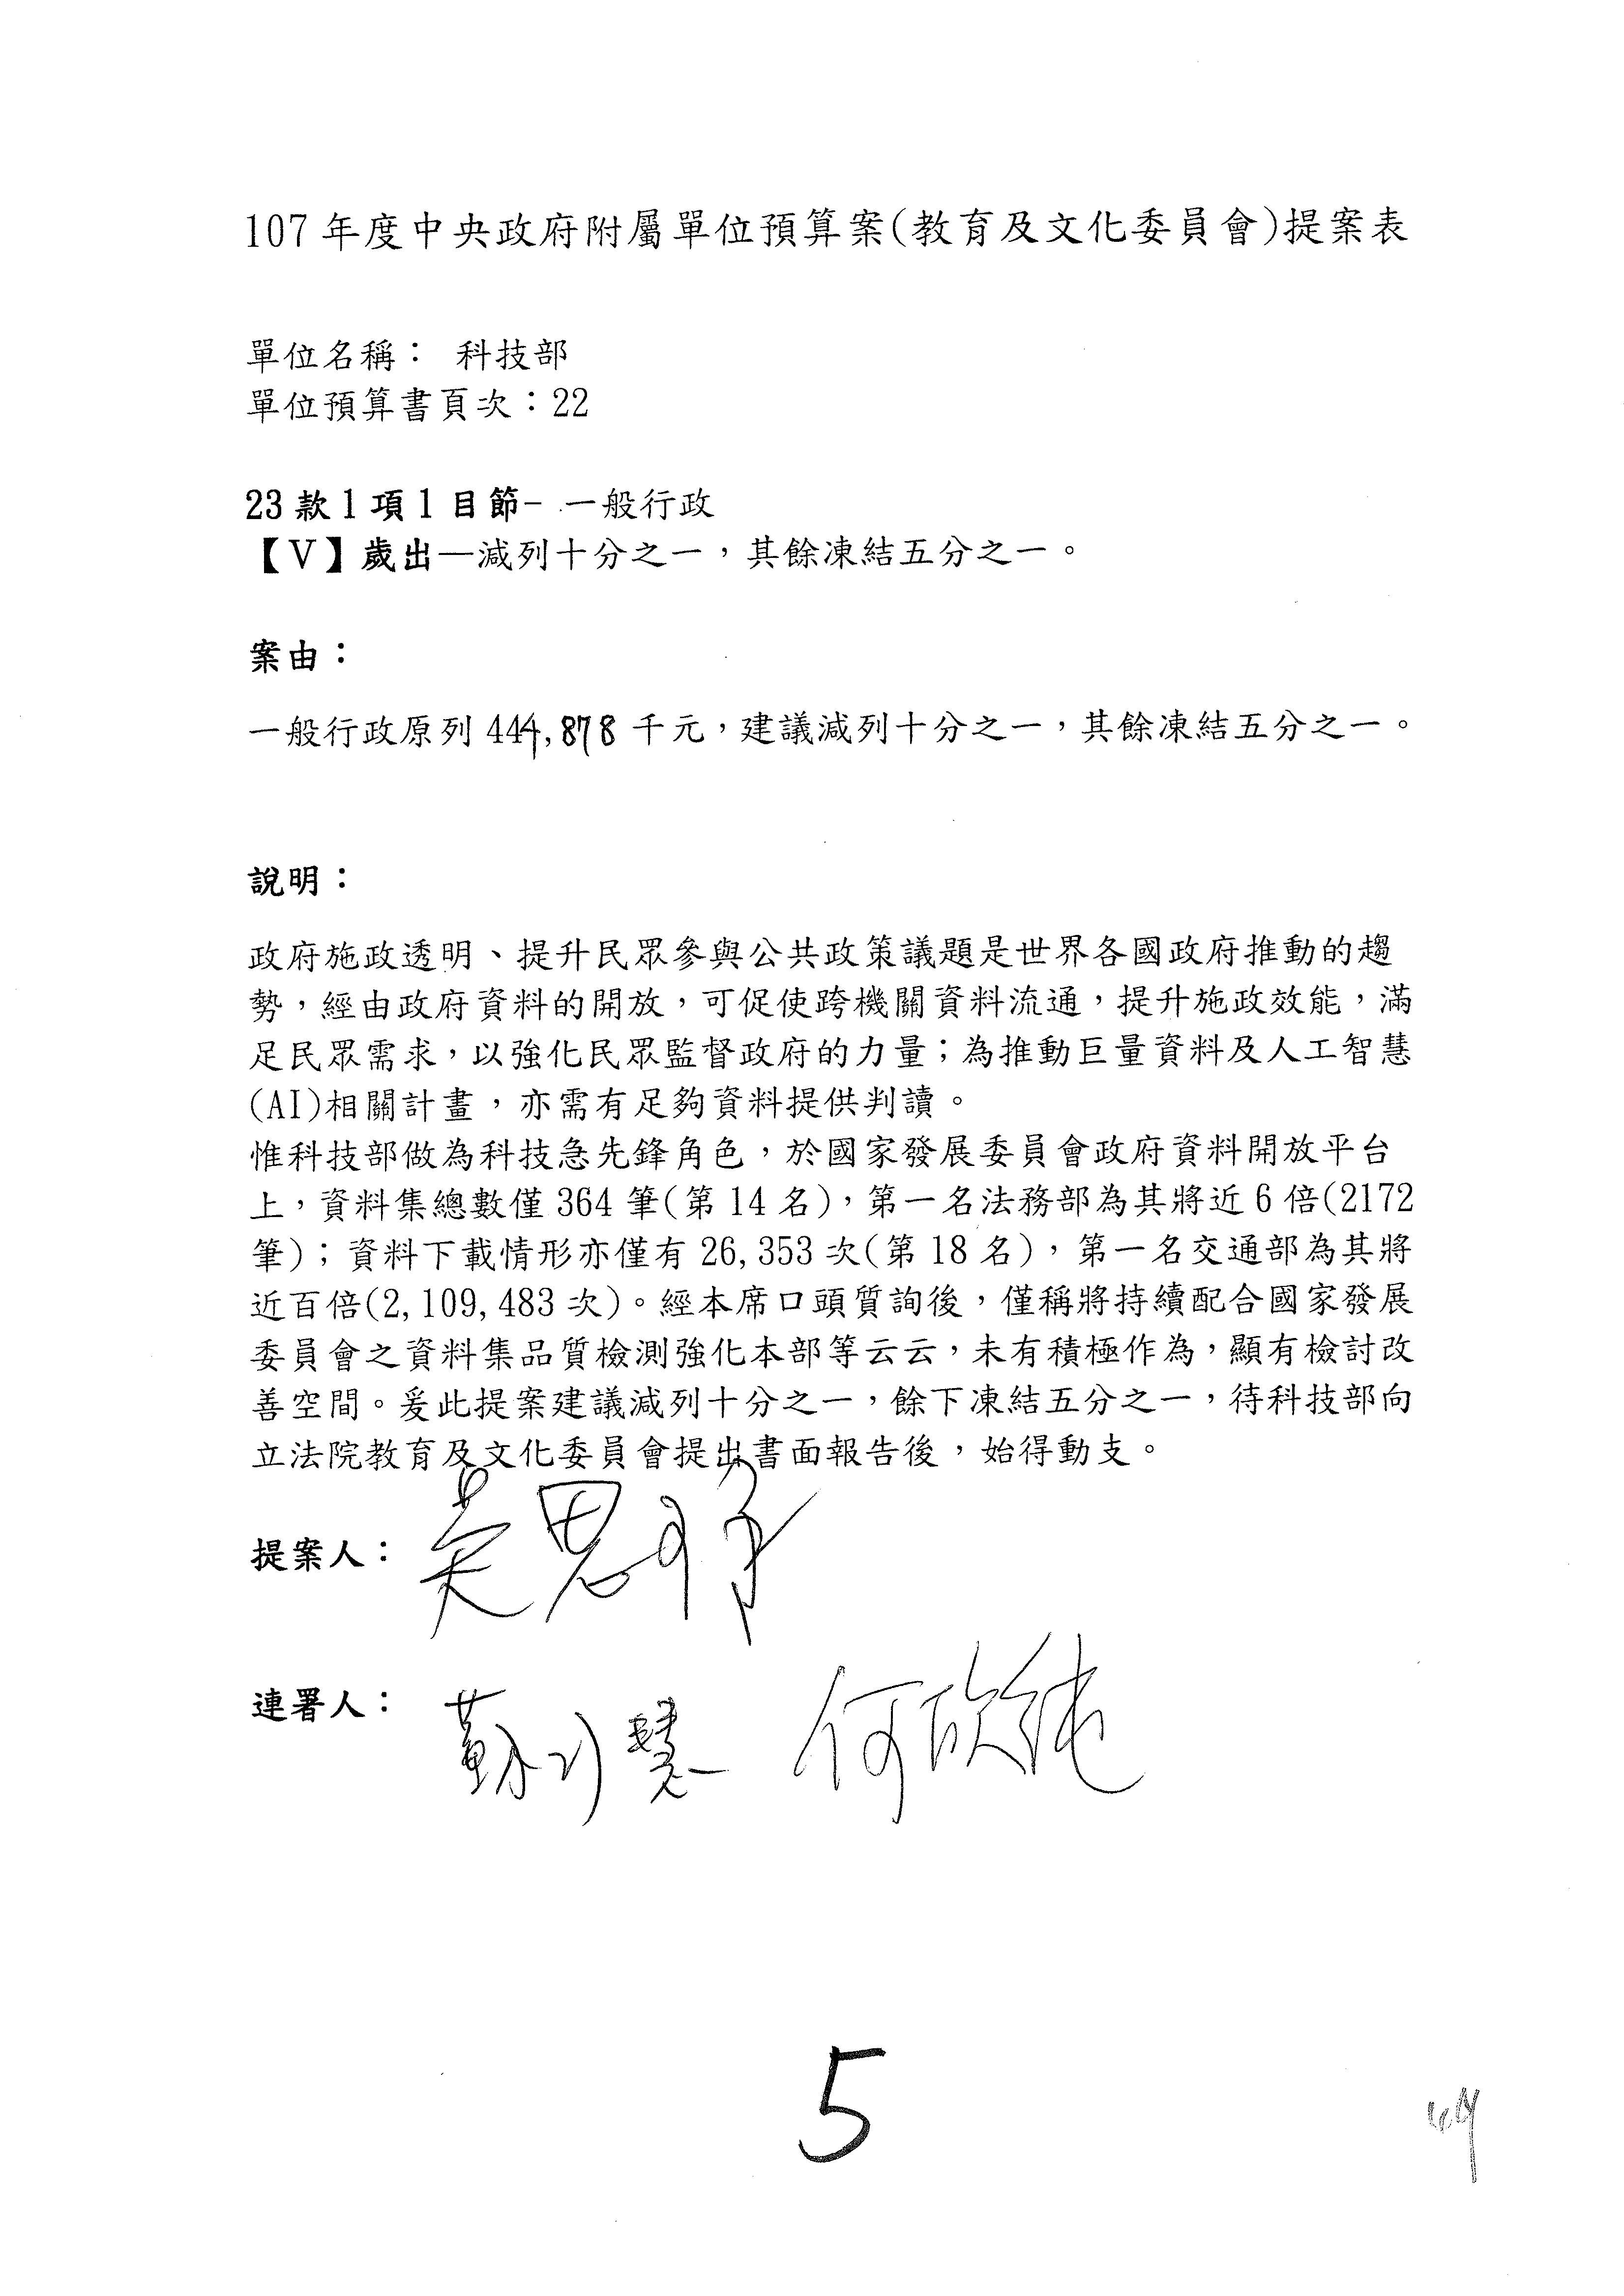 107年度中央政府附屬單位預算案(教育及文化委員會)提案表
單位名稱： 科技部
單位預算書頁次：22
23款1項1目節- 一般行政
【V】歲出—減列十分之一，其餘凍結五分之一。
案由：
一般行政原列444,878千元，建議減列十分之一，其餘凍結五分之一。
說明：
政府施政透明、提升民眾參與公共政策議題是世界各國政府推動的趨
勢，經由政府資料的開放，可促使跨機關資料流通，提升施政效能，滿
足民眾需求，以強化民眾監督政府的力量；為推動巨量資料及人工智慧
(AI)相關計畫，亦需有足夠資料提供判讀。
惟科技部做為科技急先鋒角色，於國家發展委員會政府資料開放平台
上，資料集總數僅364筆(第14名)，第一名法務部為其將近6倍(2172
筆)；資料下載情形亦僅有26,353次(第18名)，第一名交通部為其將
近百倍(2,109,483次)。經本席口頭質詢後，僅稱將持續配合國家發展
委員會之資料集品質檢測強化本部等云云，未有積極作為，顯有檢討改
善空間。爰此提案建議減列十分之一，餘下凍結五分之一，待科技部向
立法院教育及文化委員會提出書面報告後，始得動支。
提案人：吳思瑤
連署人：蘇巧慧 何欣純
5